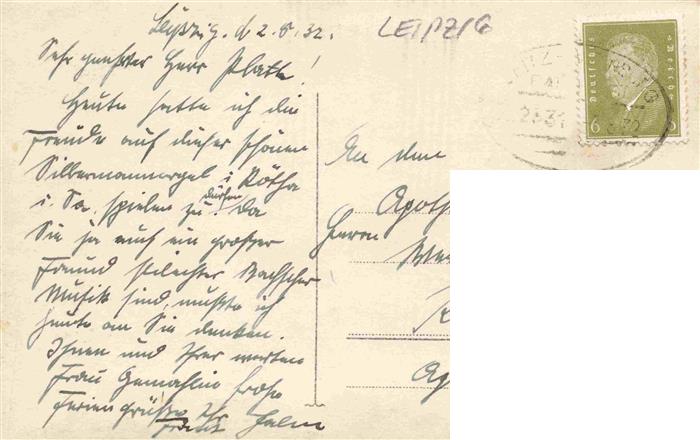 Leipzig. d 2.8.32.
LEIPZIG
Sehr geehrter Herr Platte!
Heute hatte ich die
Freude auf dieser schönen
Silbermannorgel i. Rötha
i. Sa. spielen zu dürfen. Da
Sie ja auch ein großer
Freund stilechter Bachscher
Musik sind, mußte ich
heute an Sie denken.
Ihnen und Ihrer werten
Frau Gemahlin frohe
Feriengrüße Ihr
Helm
An den
Apoth
Herrn
Deutsches Reich
6 6